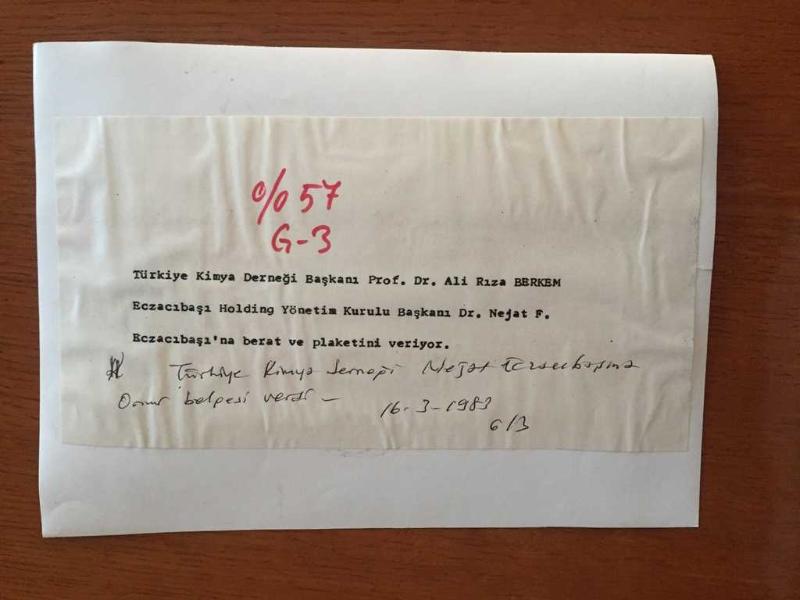 %57
G-3
Türkiye Kimya Derneği Başkanı Prof. Dr. Ali Rıza BERKEM
Eczacıbaşı Holding Yönetim Kurulu Başkanı Dr. Nejat F.
Eczacıbaşı'na berat ve plaketini veriyor.
Türkiye Kimya Derneği Nejat Eczacıbaşına
Onur belgesi verdi - 16-3-1983
6/3